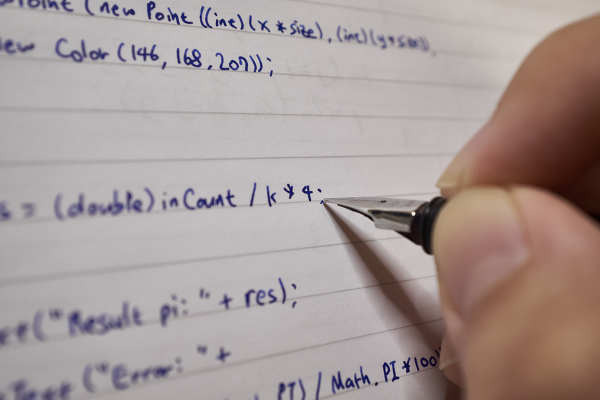 (new Point ((int)(x * size), (int)(y * size)),
new Color (146, 168, 207));
= (double) inCount / k * 4;
("Result pi: " + res);
("Error: " +
PI) / Math. PI * 100